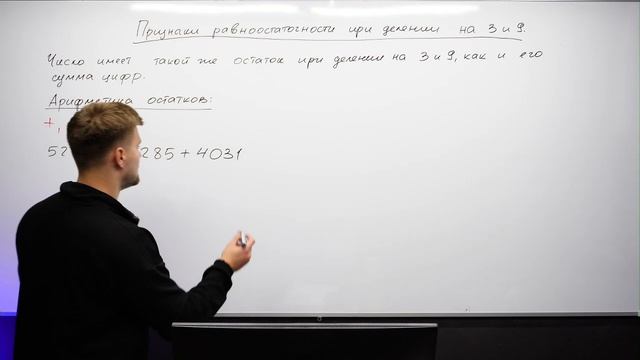 Признаки равноостаточности при делении на 3 и 9.
Число имеет такой же остаток при делении на 3 и 9, как и его
сумма цифр.
Арифметика остатков:
+,
52 285 + 4031